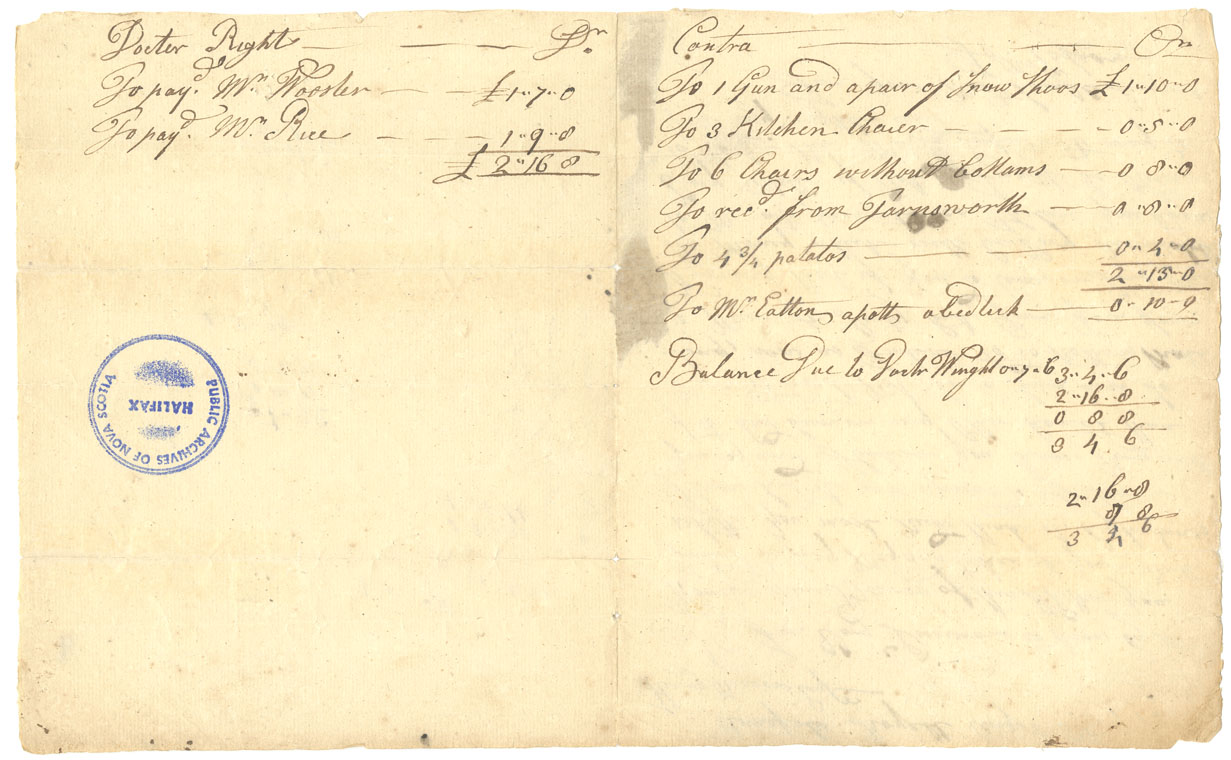 Docter Right — — — Dr.
To payd. Mr. Wooster — — £1"7"0
To payd. Mr. Rice — — — 1"9"8
£2"16"8
PUBLIC ARCHIVES OF NOVA SCOTIA
HALIFAX
Contra — — — Cr
To 1 Gun and a pair of Snow Shoos £1"10"0
To 3 Kitchen Chaier — — — 0"5"0
To 6 Chairs without bottams — — 0 8"0
To recd. from Farnsworth — — 0"8"0
To 4 3/4 patatos — — 0"4"0
2"15"0
To Mr. Eatton a pott — 0"10"9
Balance Due to Doctr Wright 0"7"6 3"4"6
2"16"8
0 8 8
3 4 6
2"16"8
8 8
3 4 6